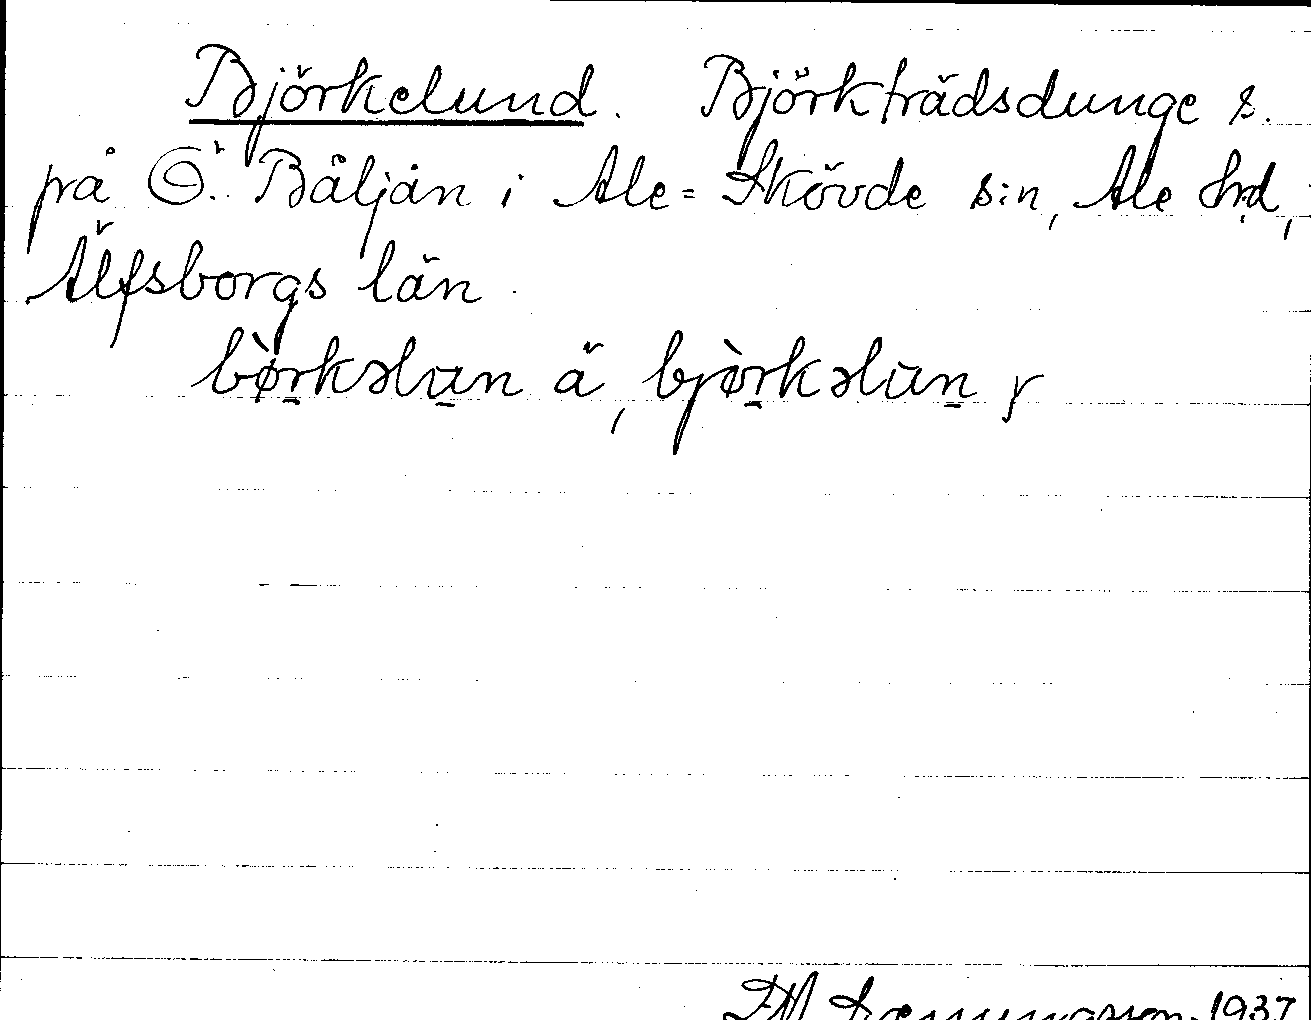 Björkelund. Björkträdsdunge s.
på Ö. Bäljån i Ale=Skövde s:n, Ale hd,
Älfsborgs län
bø̀rkəlun ä, bjø̀rkəlun y
1937